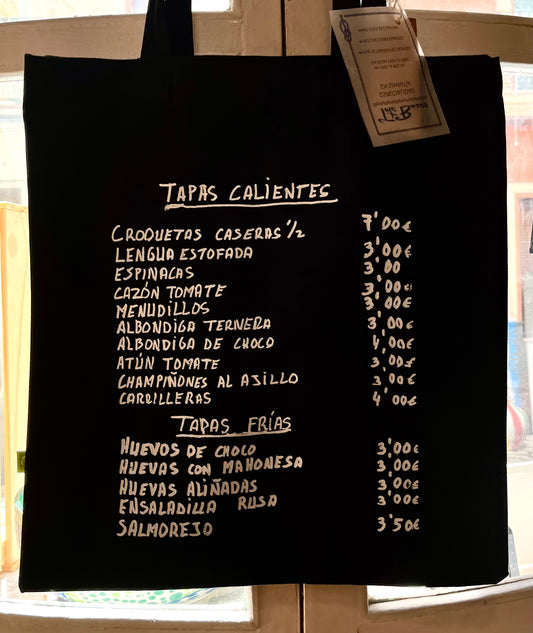 TAPAS CALIENTES
CROQUETAS CASERAS ½ 7'00€
LENGUA ESTOFADA 3'00€
ESPINACAS 3'00
CAZÓN TOMATE 3'00€
MENUDILLOS 3'00€
ALBONDIGA TERNERA 3'00€
ALBONDIGA DE CHOCO 4'00€
ATÚN TOMATE 3'00€
CHAMPIÑONES AL AJILLO 3'00€
CARRILLERAS 4'00€
TAPAS FRÍAS
HUEVOS DE CHOCO 3'00€
HUEVAS CON MAHONESA 3'00€
HUEVAS ALIÑADAS 3'00€
ENSALADILLA RUSA 3'00€
SALMOREJO 3'50€
ESPECIALIDAD